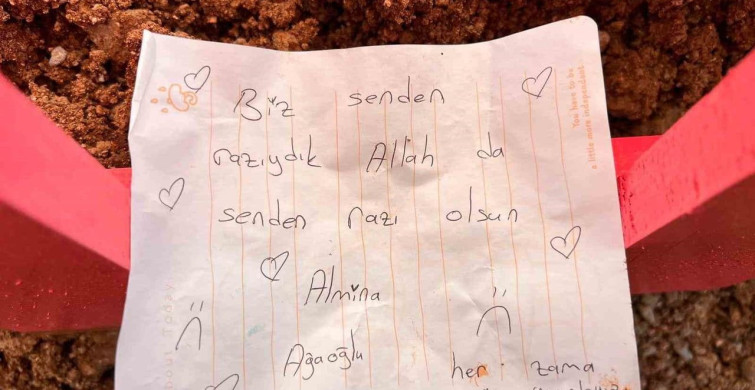 Biz senden
razıydık Allah da
senden razı olsun
Almina
Ağaoğlu her zama
You have to be
a little more independent